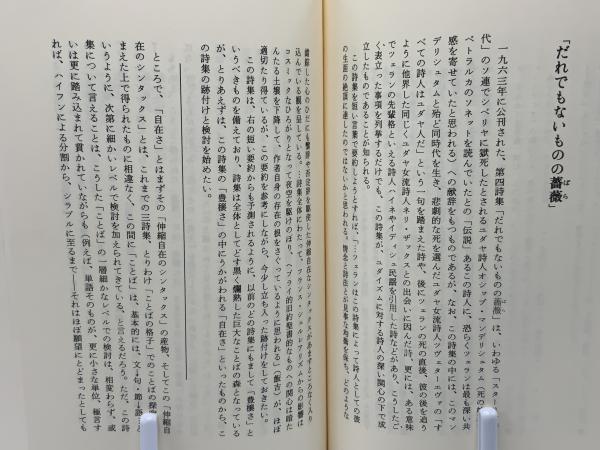 「だれでもないものの薔薇」
ばら
一九六三年に公刊された、第四詩集『だれでもないものの薔薇』は、いわゆる「スターリン時
代」のソ連でシベリヤに獄死したとされるユダヤ詩人オシップ・マンデリシュタム(死の
ペトラルカのソネットを読んでいたとの「伝説」あるこの詩人に、恐らくツェランは最も深い共
感を寄せていたと思われる)への献辞をもつものであるが、なお、この詩集の中には、このマン
デリシュタムと殆ど同時代を生き、悲劇的な死を選んだユダヤ女流詩人ツヴェターエヴァの「す
べての詩人はユダヤ人だ」という一句を踏まえた詩や、後にツェランの死の直後、彼の後を追う
ように他界した同じくユダヤ女流詩人ネリ・ザックスとの出会いに因んだ詩、更には、ある意味
でツェランの先輩格といえる詩人ハイネやイディシュ民謡を引用した詩などがあり、こうしたご
く表立った事項を列挙するだけでも、この詩集が、ユダイズムに対する詩人の深い関心の下で成
立したものであることが知られる。
この詩集を短い言葉で要約しようとすれば、「…ツェランはこの詩集によって詩人としての彼
の生涯の絶頂に達したのではないかと思われる。観念と詩在とが見事な均衡を保ち、どのような
錯綜した心のひだにも繋辞や否定辞を駆使した伸縮自在なシンタックスがあますところなく入り
込んでいる観を呈している。…詩集全体にわたって、フランス・シュルレアリスムからの影響は
コスミックなひろがりとなって夜空を駆けのぼり、ヘブライ的旧約聖書的なものへの関心は確た
んたる土壌を下降して、作者自身の存在の根をさぐっているように思われる」(飯吉)が、ほぼ
適切たり得ているが、この要約を参考にしながら、今少し立ち入った跡付けをしておきたい。
この詩集は、右の短い要約からも予測されるように、以前のどの詩集にもまして「豊穣さ」と
いうべきものを備えており、詩集は全体としてどす黒く爛熟した巨大なことばの森となっている
が、とりあえずは、この詩集の「豊穣さ」の中にうかがわれる「自在さ」といったものから、こ
の詩集の跡付けと検討を始めたい。
ところで、「自在さ」とはまずその「伸縮自在なシンタックス」の産物、そしてこの「伸縮自
在のシンタックス」とは、これまでの三詩集、とりわけ『ことばの格子』でのことばの探
まえた上で得られたものに相違なく、この間に「ことば」は、基本的には、文→句・節→語
いうように、次第に細かいレベルで検討を加えられてきている、と言えるだろう。ただ、この詩
集について言えることは、こうした「ことば」の一層細かなレベルでの検討は、相変わらず、或
いは更に踏み込まれて貫かれていながらも(例えば、単語そのものが、更に小さな単位、極言す
れば、ハイフンによる分割から、シラブルに至るまで――それはほぼ願望にとどまったとしても